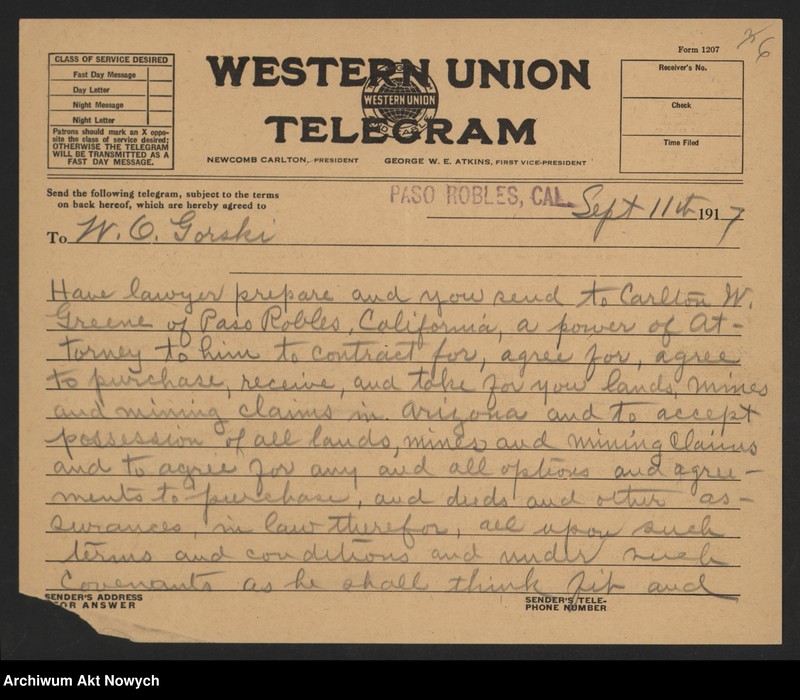 Form 1207
CLASS OF SERVICE DESIRED
Fast Day Message
Day Letter
Night Message
Night Letter
Patrons should mark an X oppo-
site the class of service desired;
OTHERWISE THE TELEGRAM
WILL BE TRANSMITTED AS A
FAST DAY MESSAGE.
WESTERN UNION
WESTERN UNION
TELEGRAM
NEWCOMB CARLTON, PRESIDENT GEORGE W. E. ATKINS, FIRST VICE-PRESIDENT
Receiver's No.
Check
Time Filed
Send the following telegram, subject to the terms
on back hereof, which are hereby agreed to
PASO ROBLES, CAL. Sept 11th 1917
To W. O. Gorski
Have lawyer prepare and you send to Carlton W.
Greene of Paso Robles, California, a power of At-
torney to him to contract for, agree for, agree
to purchase, receive, and take for you lands, mines
and mining claims in Arizona and to accept
possession of all lands, mines and mining claims
and to agree for any and all options and agree-
ments to purchase, and deeds and other as-
surances, in law therefor, all upon such
terms and conditions and under such
Covenants as he shall think fit and
SENDER'S ADDRESS
FOR ANSWER
SENDER'S TELE-
PHONE NUMBER
Archiwum Akt Nowych